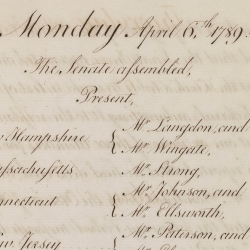 Monday April 6.th 1789.
The Senate assembled,
Present,
Hampshire { Mr. Langdon, and
Mr. Wingate,
assachusetts Mr. Strong,
nnecticut { Mr. Johnson, and
Mr. Ellsworth,
w Jersey { Mr. Patterson, and